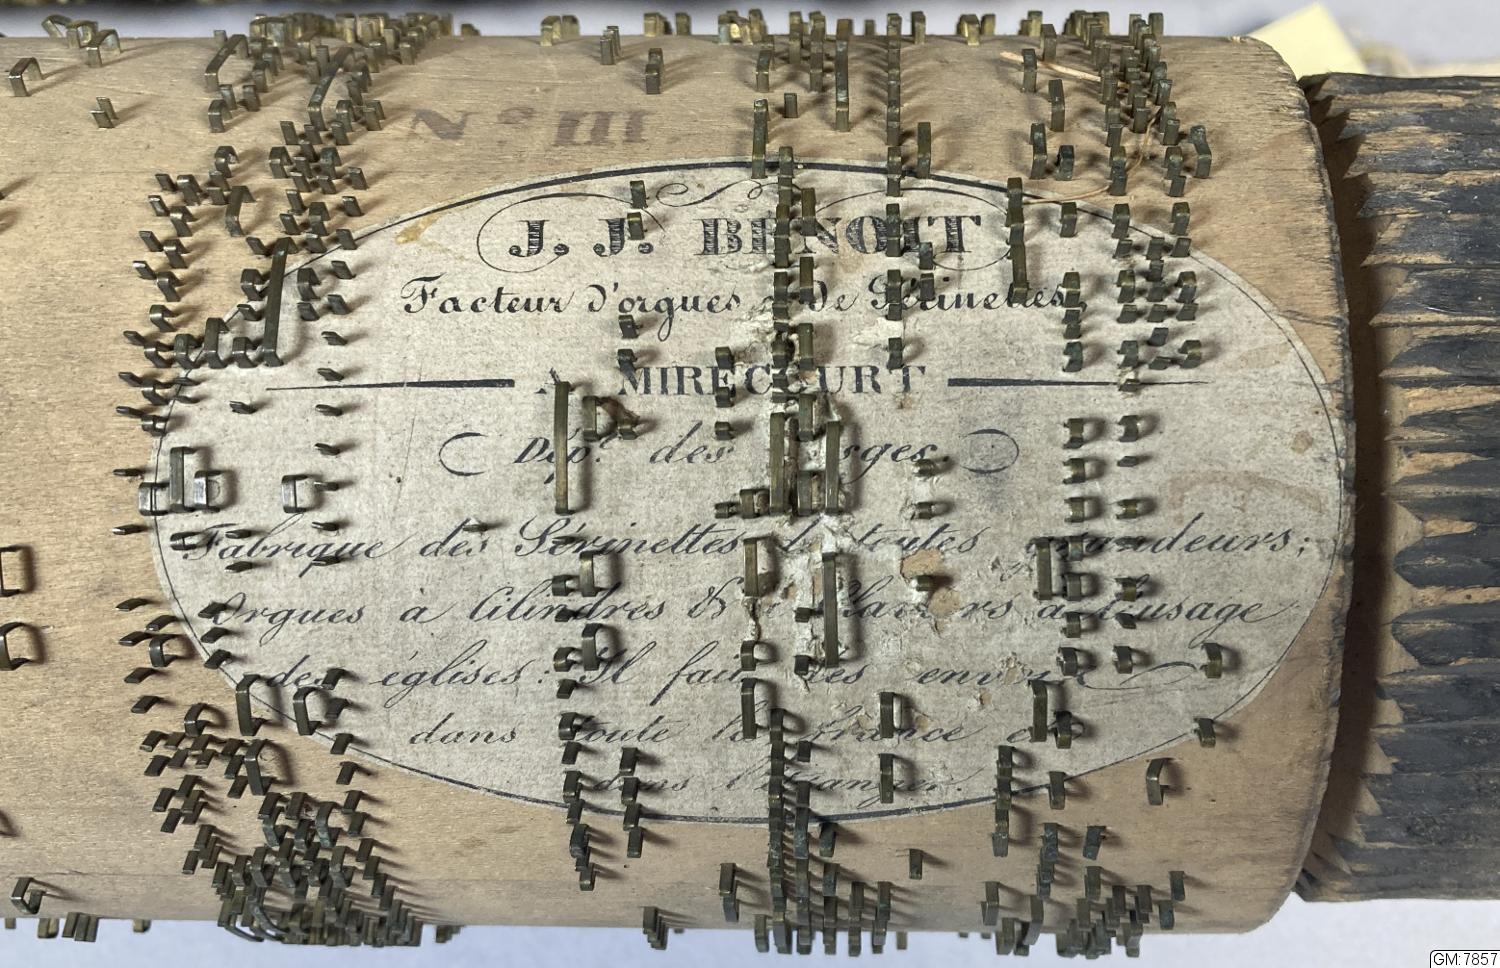 N.º III
J. J. BENOIT
Facteur d'orgues de Sérinettes
MIRECOURT
Dép.t des
Fabrique des Sérinettes de toutes grandeurs;
Orgues à Cilindres & à Claviers à l'usage
des églises: Il fait des envois
dans toute la France et
dans l'étranger.
GM:7857